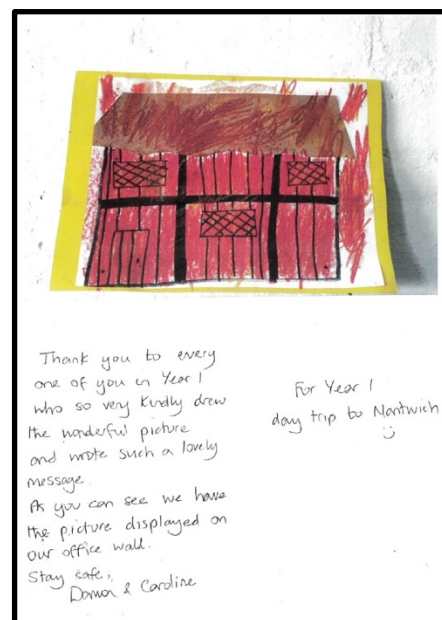 Thank you to every
one of you in Year 1
who so very kindly drew
the wonderful picture
and wrote such a lovely
message.
As you can see we have
the picture displayed on
our office wall.
Stay safe,
& Caroline
For Year 1
day trip to Nantwich